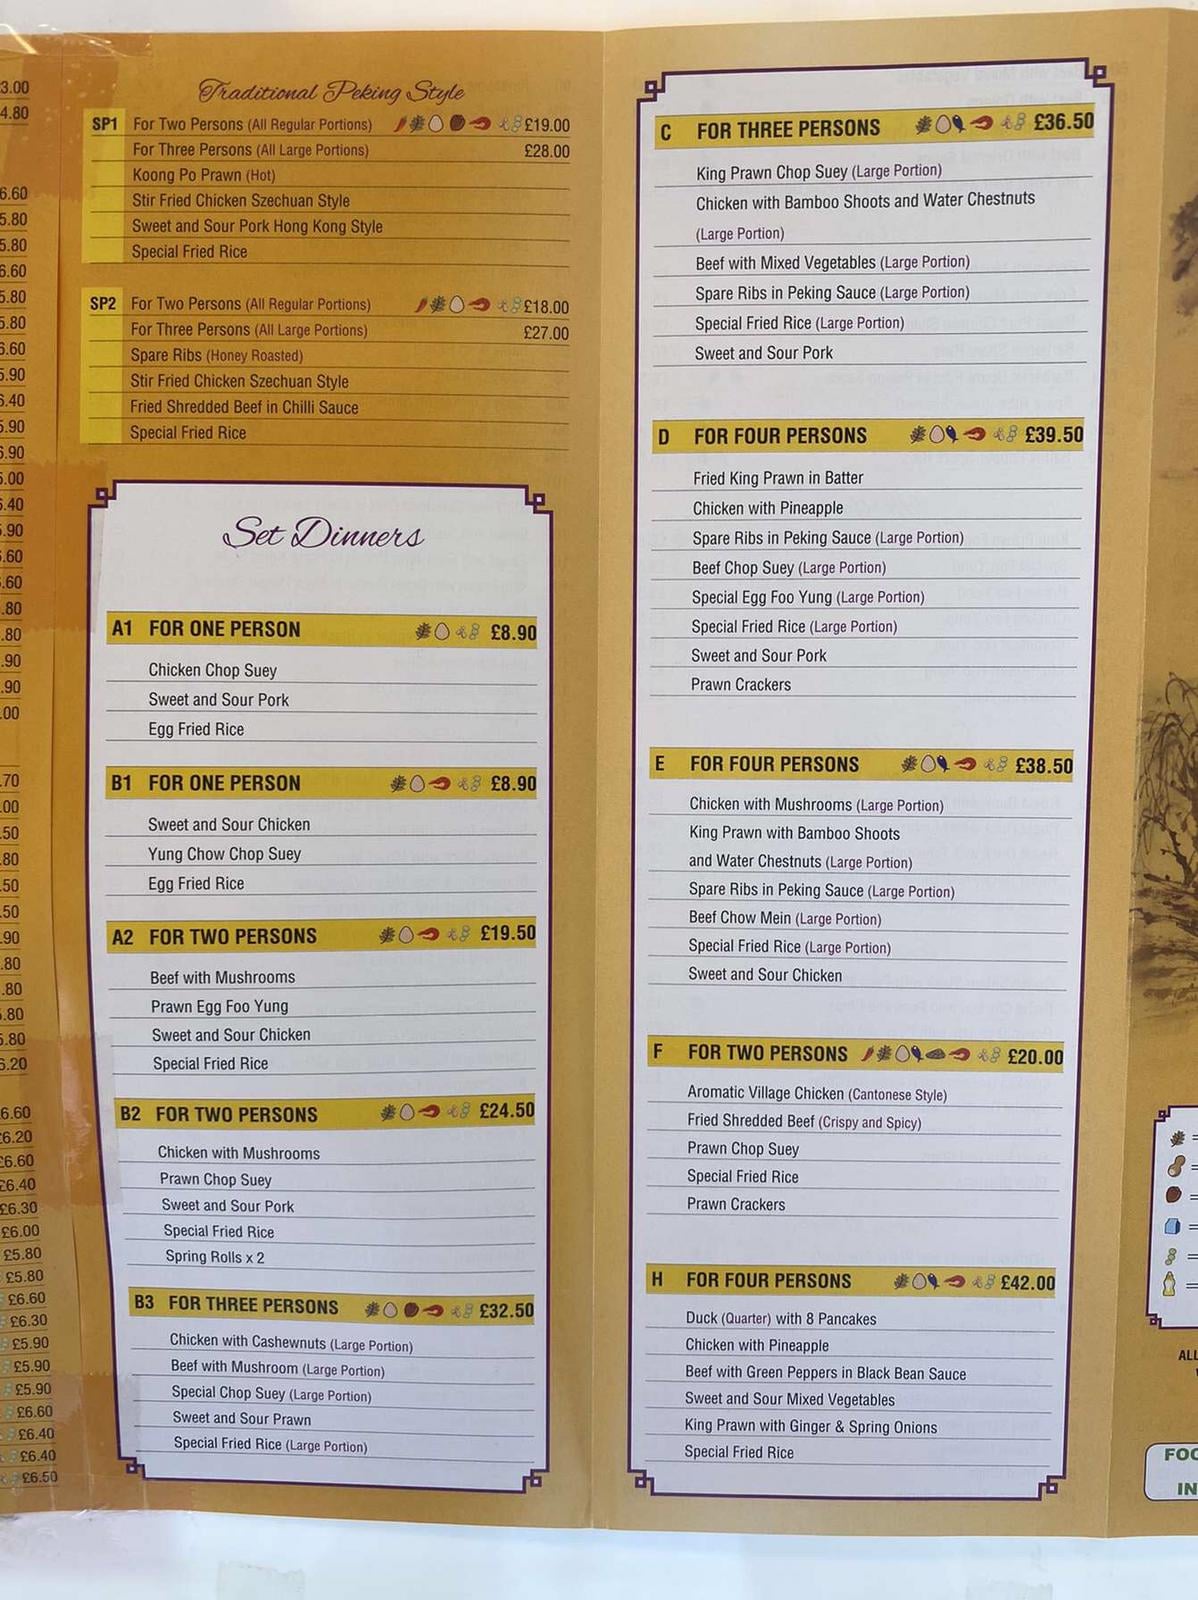 3.00
4.80
6.60
5.80
5.80
6.60
5.80
5.80
6.60
5.90
6.40
5.90
6.90
5.00
6.40
5.90
.60
.60
.80
.80
.90
.90
.00
.70
.00
.50
.80
.50
.50
.90
.80
.80
5.80
5.80
6.20
6.60
£6.20
£6.60
£6.40
£6.30
£6.00
£5.80
£5.80
£6.60
£6.30
£5.90
£5.90
£5.90
£6.60
£6.40
£6.40
£6.50
Traditional Peking Style
SP1 For Two Persons (All Regular Portions) £19.00
For Three Persons (All Large Portions) £28.00
Koong Po Prawn (Hot)
Stir Fried Chicken Szechuan Style
Sweet and Sour Pork Hong Kong Style
Special Fried Rice
SP2 For Two Persons (All Regular Portions) £18.00
For Three Persons (All Large Portions) £27.00
Spare Ribs (Honey Roasted)
Stir Fried Chicken Szechuan Style
Fried Shredded Beef in Chilli Sauce
Special Fried Rice
Set Dinners
A1 FOR ONE PERSON £8.90
Chicken Chop Suey
Sweet and Sour Pork
Egg Fried Rice
B1 FOR ONE PERSON £8.90
Sweet and Sour Chicken
Yung Chow Chop Suey
Egg Fried Rice
A2 FOR TWO PERSONS £19.50
Beef with Mushrooms
Prawn Egg Foo Yung
Sweet and Sour Chicken
Special Fried Rice
B2 FOR TWO PERSONS £24.50
Chicken with Mushrooms
Prawn Chop Suey
Sweet and Sour Pork
Special Fried Rice
Spring Rolls x 2
B3 FOR THREE PERSONS £32.50
Chicken with Cashewnuts (Large Portion)
Beef with Mushroom (Large Portion)
Special Chop Suey (Large Portion)
Sweet and Sour Prawn
Special Fried Rice (Large Portion)
C FOR THREE PERSONS £36.50
King Prawn Chop Suey (Large Portion)
Chicken with Bamboo Shoots and Water Chestnuts
(Large Portion)
Beef with Mixed Vegetables (Large Portion)
Spare Ribs in Peking Sauce (Large Portion)
Special Fried Rice (Large Portion)
Sweet and Sour Pork
D FOR FOUR PERSONS £39.50
Fried King Prawn in Batter
Chicken with Pineapple
Spare Ribs in Peking Sauce (Large Portion)
Beef Chop Suey (Large Portion)
Special Egg Foo Yung (Large Portion)
Special Fried Rice (Large Portion)
Sweet and Sour Pork
Prawn Crackers
E FOR FOUR PERSONS £38.50
Chicken with Mushrooms (Large Portion)
King Prawn with Bamboo Shoots
and Water Chestnuts (Large Portion)
Spare Ribs in Peking Sauce (Large Portion)
Beef Chow Mein (Large Portion)
Special Fried Rice (Large Portion)
Sweet and Sour Chicken
F FOR TWO PERSONS £20.00
Aromatic Village Chicken (Cantonese Style)
Fried Shredded Beef (Crispy and Spicy)
Prawn Chop Suey
Special Fried Rice
Prawn Crackers
H FOR FOUR PERSONS £42.00
Duck (Quarter) with 8 Pancakes
Chicken with Pineapple
Beef with Green Peppers in Black Bean Sauce
Sweet and Sour Mixed Vegetables
King Prawn with Ginger & Spring Onions
Special Fried Rice
ALL
FOO
IN